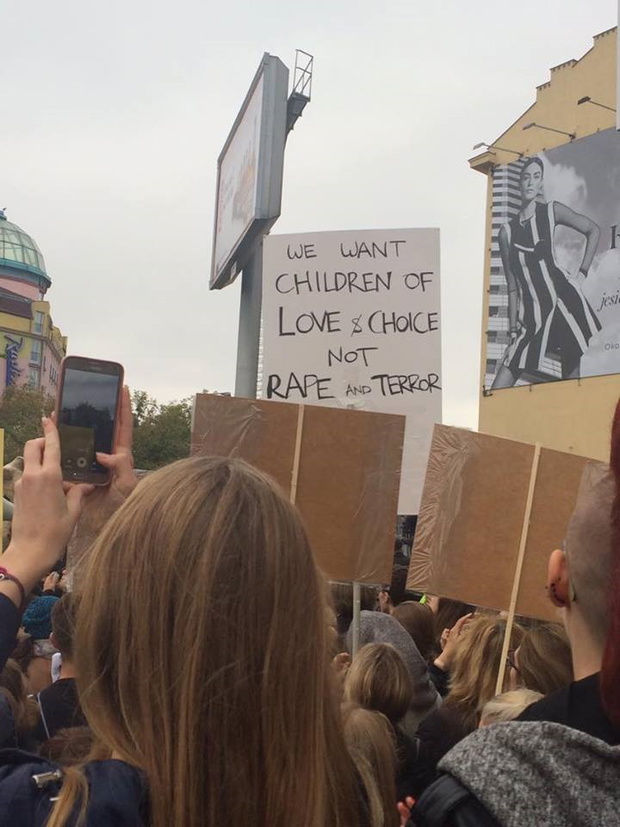 WE WANT
CHILDREN OF
LOVE & CHOICE
NOT
RAPE AND TERROR